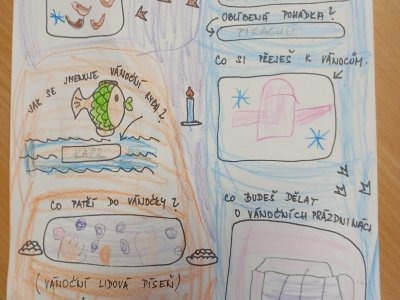 JAK SE JMENUJE VÁNOČNÍ RYBA?
KAPR
CO PATŘÍ DO VÁNOČKY?
(VÁNOČNÍ LIDOVÁ PÍSEŇ)
OBLÍBENÁ POHÁDKA?
PIKACHU
CO SI PŘEJEŠ K VÁNOCŮM.
CO BUDEŠ DĚLAT
O VÁNOČNÍCH PRÁZDNINÁCH